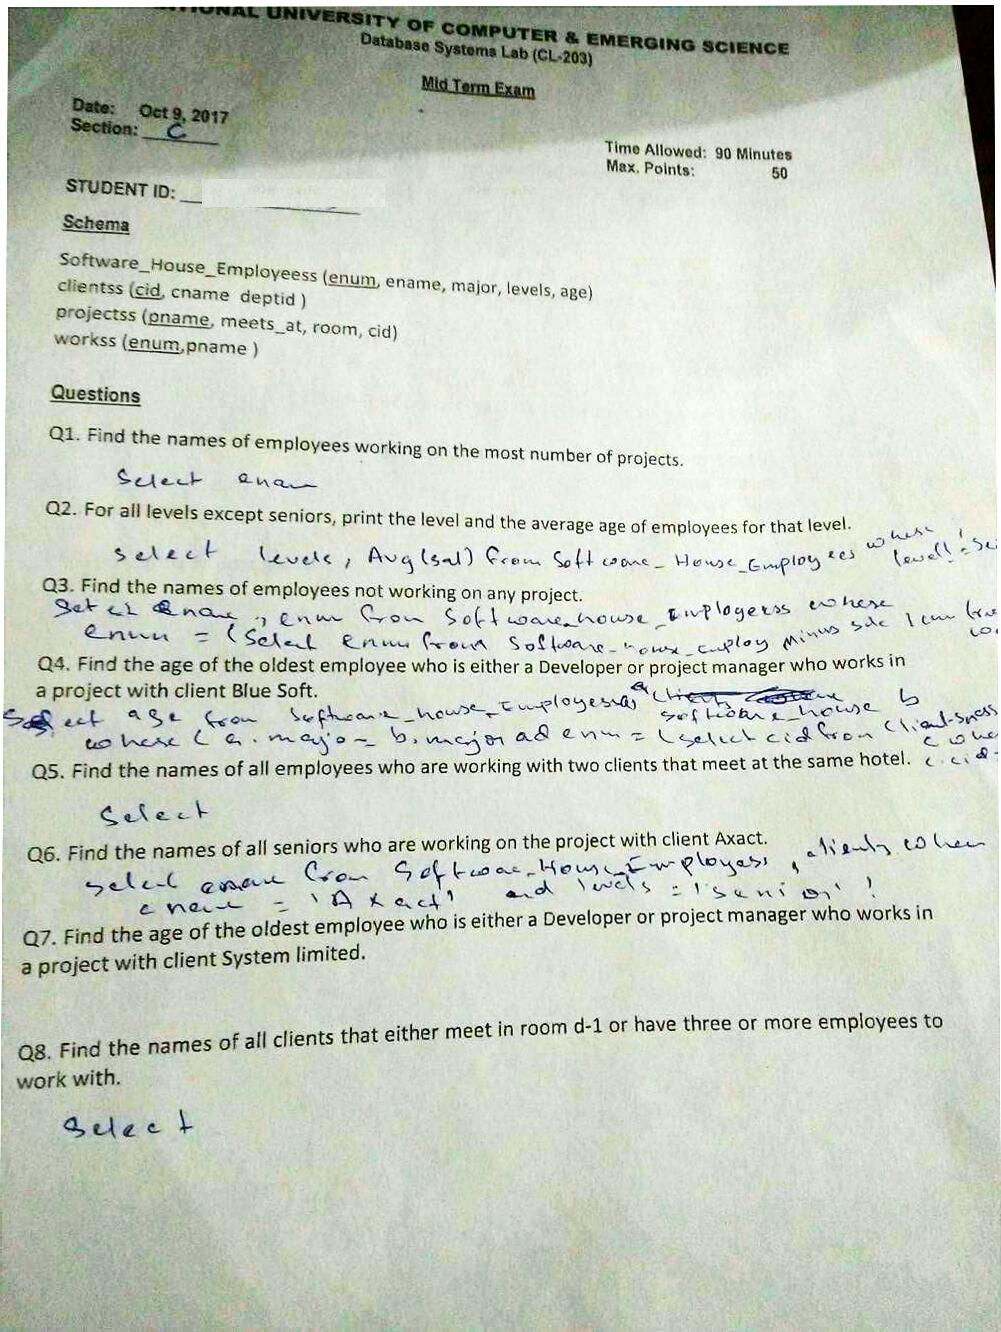 UNIVERSITY OF COMPUTER & EMERGING SCIENCE
Database Systems Lab (CL-203)
Mid Term Exam
Date: Oct 9, 2017
Section: C
Time Allowed: 90 Minutes
Max. Points: 50
STUDENT ID:
Schema
Software_House_Employeess (enum, ename, major, levels, age)
clientss (cid, cname deptid )
projectss (pname, meets_at, room, cid)
workss (enum,pname )
Questions
Q1. Find the names of employees working on the most number of projects.
Select enam
Q2. For all levels except seniors, print the level and the average age of employees for that level.
select levels, Avg(sal) from Software_House_Employees where
level! =
Q3. Find the names of employees not working on any project.
enum from Software_house_Employeess where
enum = (Select enum from Software_house_employ minus
Q4. Find the age of the oldest employee who is either a Developer or project manager who works in
a project with client Blue Soft.
Select age from Software_house_Employees a
software_house b
where (a.major = b.major ad enum = (select cid from
Q5. Find the names of all employees who are working with two clients that meet at the same hotel.
c.cid
Select
Q6. Find the names of all seniors who are working on the project with client Axact.
select ename from Software_House_Employess, clients when
cname = 'Axact' and levels = 'senior' !
Q7. Find the age of the oldest employee who is either a Developer or project manager who works in
a project with client System limited.
Q8. Find the names of all clients that either meet in room d-1 or have three or more employees to
work with.
Select